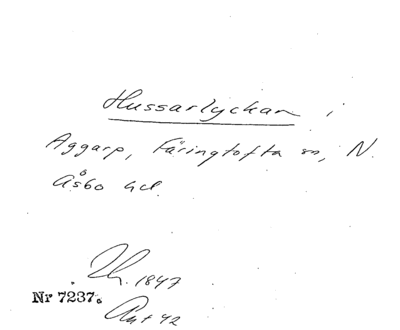 Hussarlyckan i
Aggarp, Färingtofta sn, N.
Åsbo hd.
1847
Nr 7237.
42